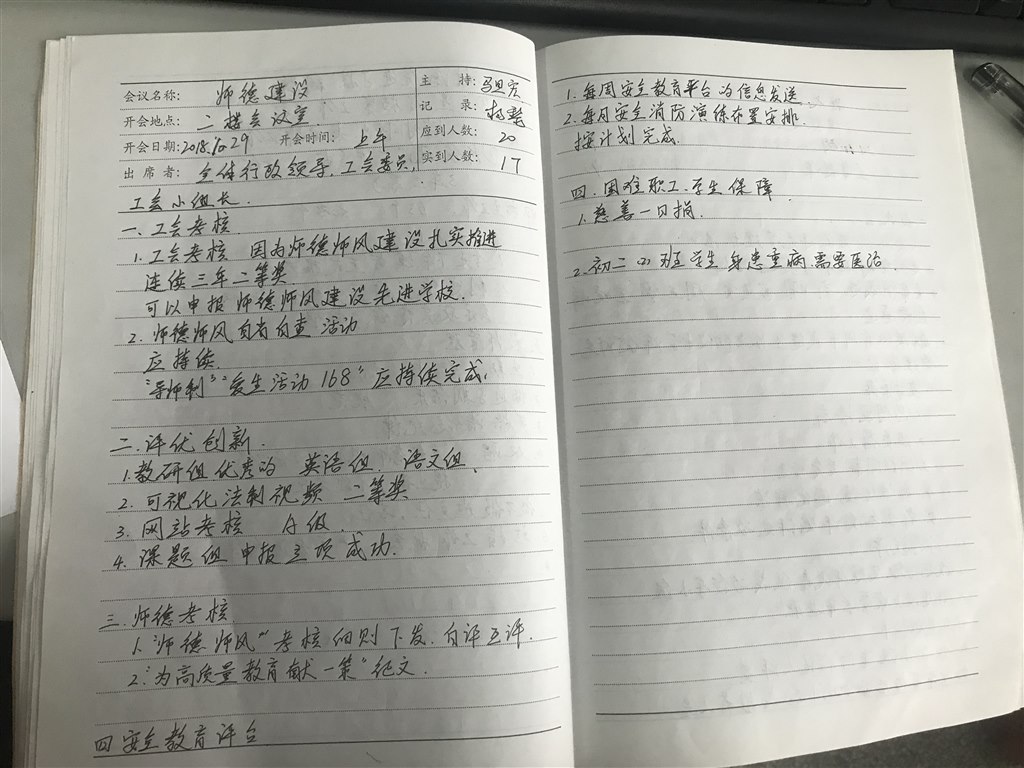 会议名称: 师德建设 主 持:
开会地点: 二楼会议室 记 录:
开会日期: 2018.10.29 开会时间: 上午 应到人数: 20
出 席 者: 全体行政领导、工会委员、 实到人数: 17
工会小组长.
一、工会考核
1. 工会考核 因为师德师风建设扎实推进
连续三年二等奖
可以申报师德师风建设先进学校.
2. 师德师风自省自查 活动
应持续
“导师制”“爱生活动168”应持续完成.
二.评优创新.
1.教研组优秀的 英语组、语文组、
2. 可视化法制视频 二等奖
3. 网站考核 A级.
4. 课题组申报立项成功.
三.师德考核
1.“师德师风”考核细则下发.自评互评.
2.“为高质量教育献一策”征文.
四 安全教育平台
1. 每周安全教育平台的信息发送.
2. 每月安全消防演练布置安排
按计划完成.
四. 困难职工、学生保障
1. 慈善一日捐.
2. 初二(2)班学生身患重病需要医治.